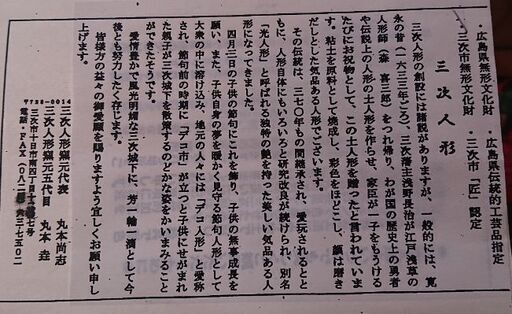 ・広島県無形文化財　・広島県伝統的工芸品指定
・三次市無形文化財　・三次市「匠」認定
三次人形
三次人形の創設には諸説がありますが、一般的には、寛
永の昔(一六三三年ごろ)三次藩主浅野長治が江戸浅草の
人形師(森 喜三郎)をつれ帰り、わが国の歴史上の勇者
や伝説上の人形の土人形を作らせ、家臣が一子をもうける
たびにお祝物として、この土人形を贈ったと言われていま
す。粘土を原料として焼成し、彩色をほどこし、顔は磨き
だしとした気品ある人形でございます。
その伝統は、三七〇年もの間継承され、愛玩されるとと
もに、人形自体にもいろいろと研究改良が続けられ、別名
「光人形」と呼ばれる独特の艶を持った美しい気品ある人
形になってきました。
四月三日の子供の節句にこれを飾り、子供の無事成長を
願い、また、子供自身の夢を暖かく見守る節句人形として
大衆の中に溶け込み、地元の人々には「デコ人形」と愛称
され、節句前の時期に「デコ市」が立つと子供にせがまれ
た親子が三次城下を散策するのどかな姿をかいまみること
ができたそうです。
愛情豊かで風光明媚な三次城下に、芳一輪一滴として今
後とも努力したく存じます。
皆様方の益々の御愛顧を賜りますよう宜しくお願い申し
上げます。
三次人形窯元代表　丸本尚志
三次人形窯元五代目　丸本　垚
〒728-0014
三次市十日市南四丁目 七号
電話・FAX(〇八二 六三-七五〇二